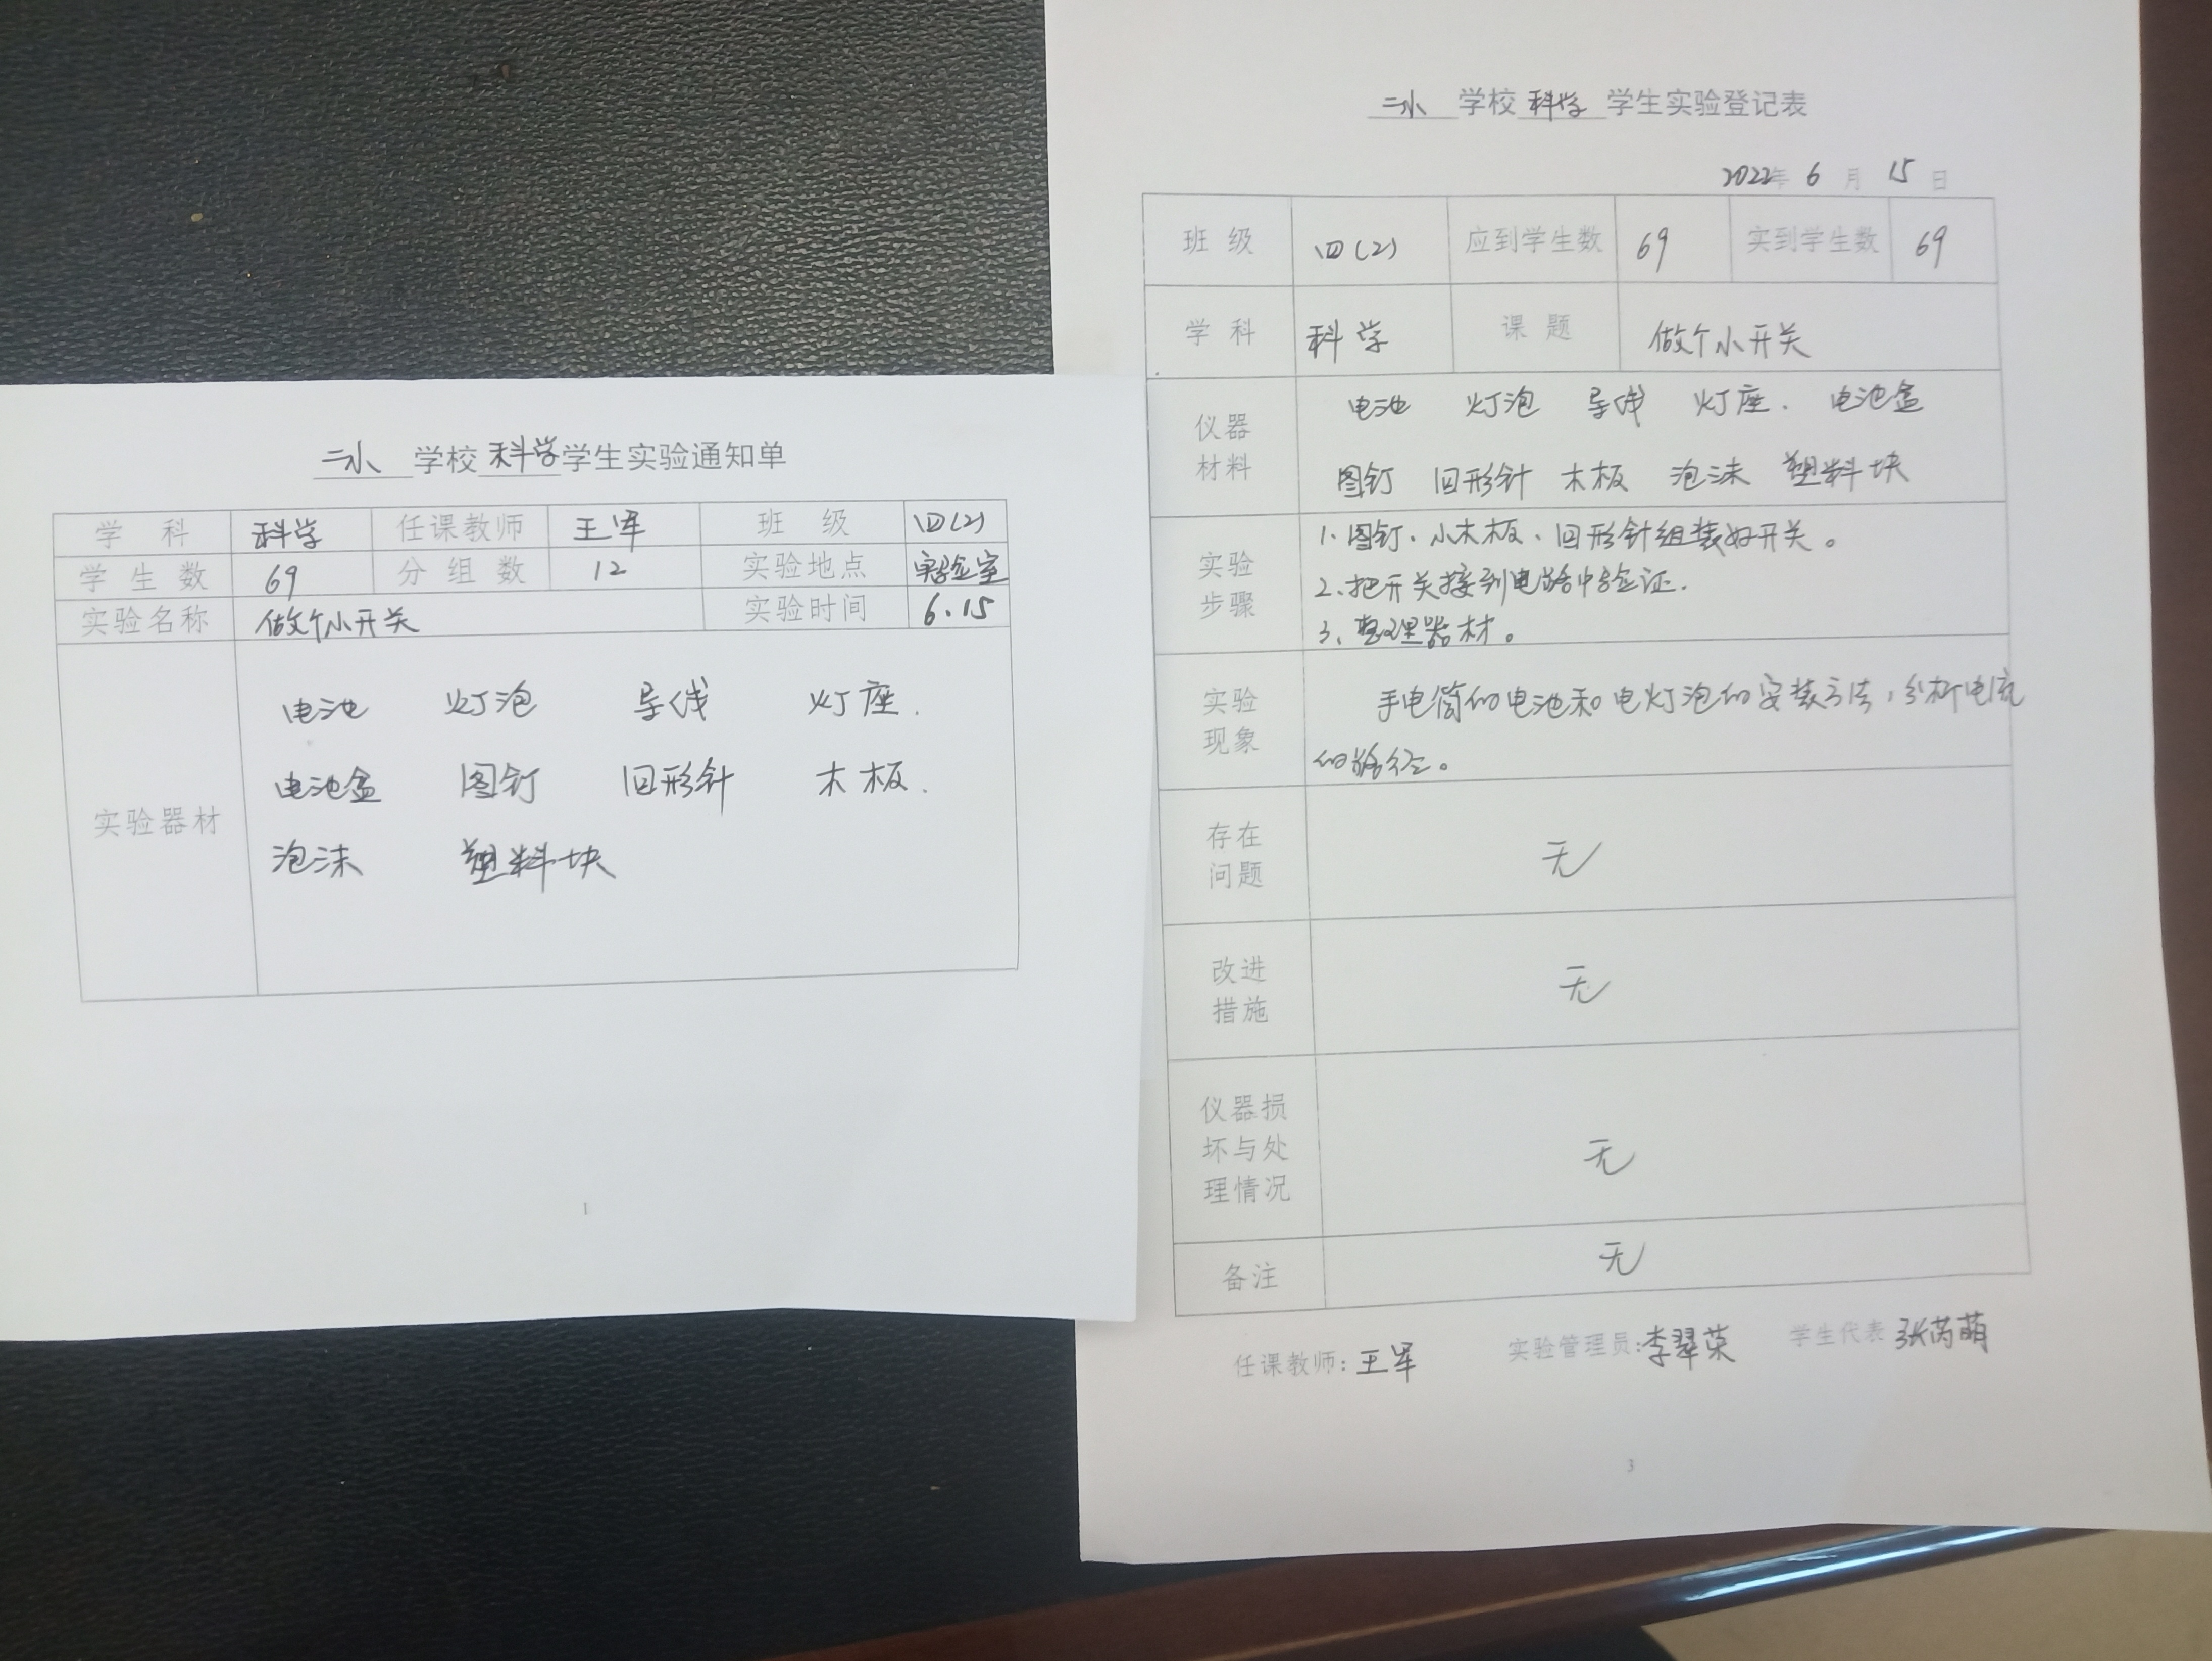 二小 学校 科学 学生实验通知单
学 科 科学 任课教师 王军 班 级 四(2)
学 生 数 69 分 组 数 12 实验地点 实验室
实验名称 做个小开关 实验时间 6.15
实验器材
电池 灯泡 导线 灯座.
电池盒 图钉 回形针 木板.
泡沫 塑料块
1
二小 学校 科学 学生实验登记表
2022年 6 月 15 日
班 级 四(2) 应到学生数 69 实到学生数 69
学 科 科学 课 题 做个小开关
仪器
材料
电池 灯泡 导线 灯座. 电池盒
图钉 回形针 木板 泡沫 塑料块
实验
步骤
1、图钉、小木板、回形针组装好开关。
2、把开关接到电路中验证.
3、整理器材。
实验
现象
手电筒的电池和电灯泡的安装方法,分析电流
的路径。
存在
问题
无
改进
措施
无
仪器损
坏与处
理情况
无
备注
无
任课教师: 王军 实验管理员: 李翠荣 学生代表 张芮萌
3